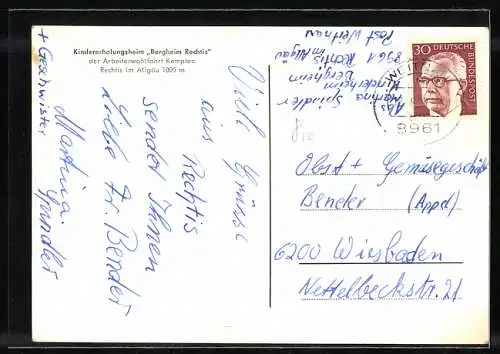 Kindererholungsheim „Bergheim Rechtis"
der Arbeiterwohlfahrt Kempten
Rechtis im Allgäu 1005 m
Viele Grüsse
aus Rechtis
sendet Ihnen
liebe Fr. Bender
Martina
Spindler
+ Geschwister
Martina Spindler
Kinderheim
Bergheim
8961 Rechtis
im Allgäu
Post Weitnau
30 DEUTSCHE
BUNDESPOST
8961
Obst + Gemüsegeschäft
Bender (Appel)
6200 Wiesbaden
Nettelbeckstr. 21